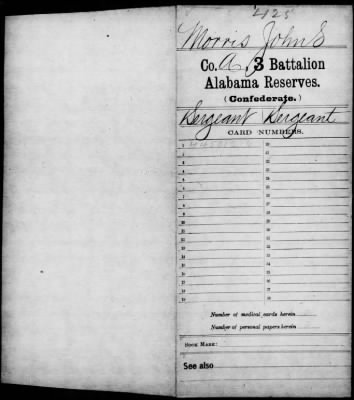 2125
Morris John S
Co. A, 3 Battalion
Alabama Reserves.
(Confederate.)
Sergeant Sergeant
CARD NUMBERS.
1 20
2 21
3 22
4 23
5 24
6 25
7 26
8 27
9 28
10 29
11 30
12 31
13 32
14 33
15 34
16 35
17 36
18 37
19 38
Number of medical cards herein
Number of personal papers herein
BOOK MARK:
See also